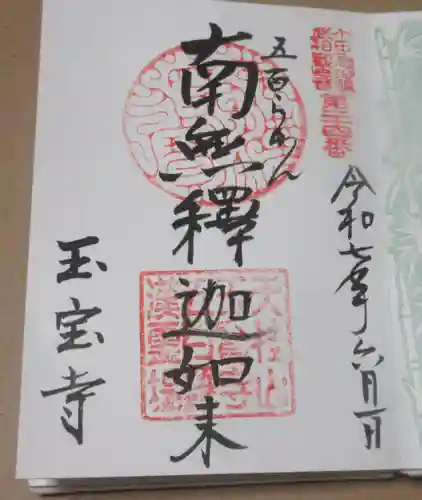 第二十四番
令和七年六月一日
五百らかん
南無釋迦如来
玉宝寺